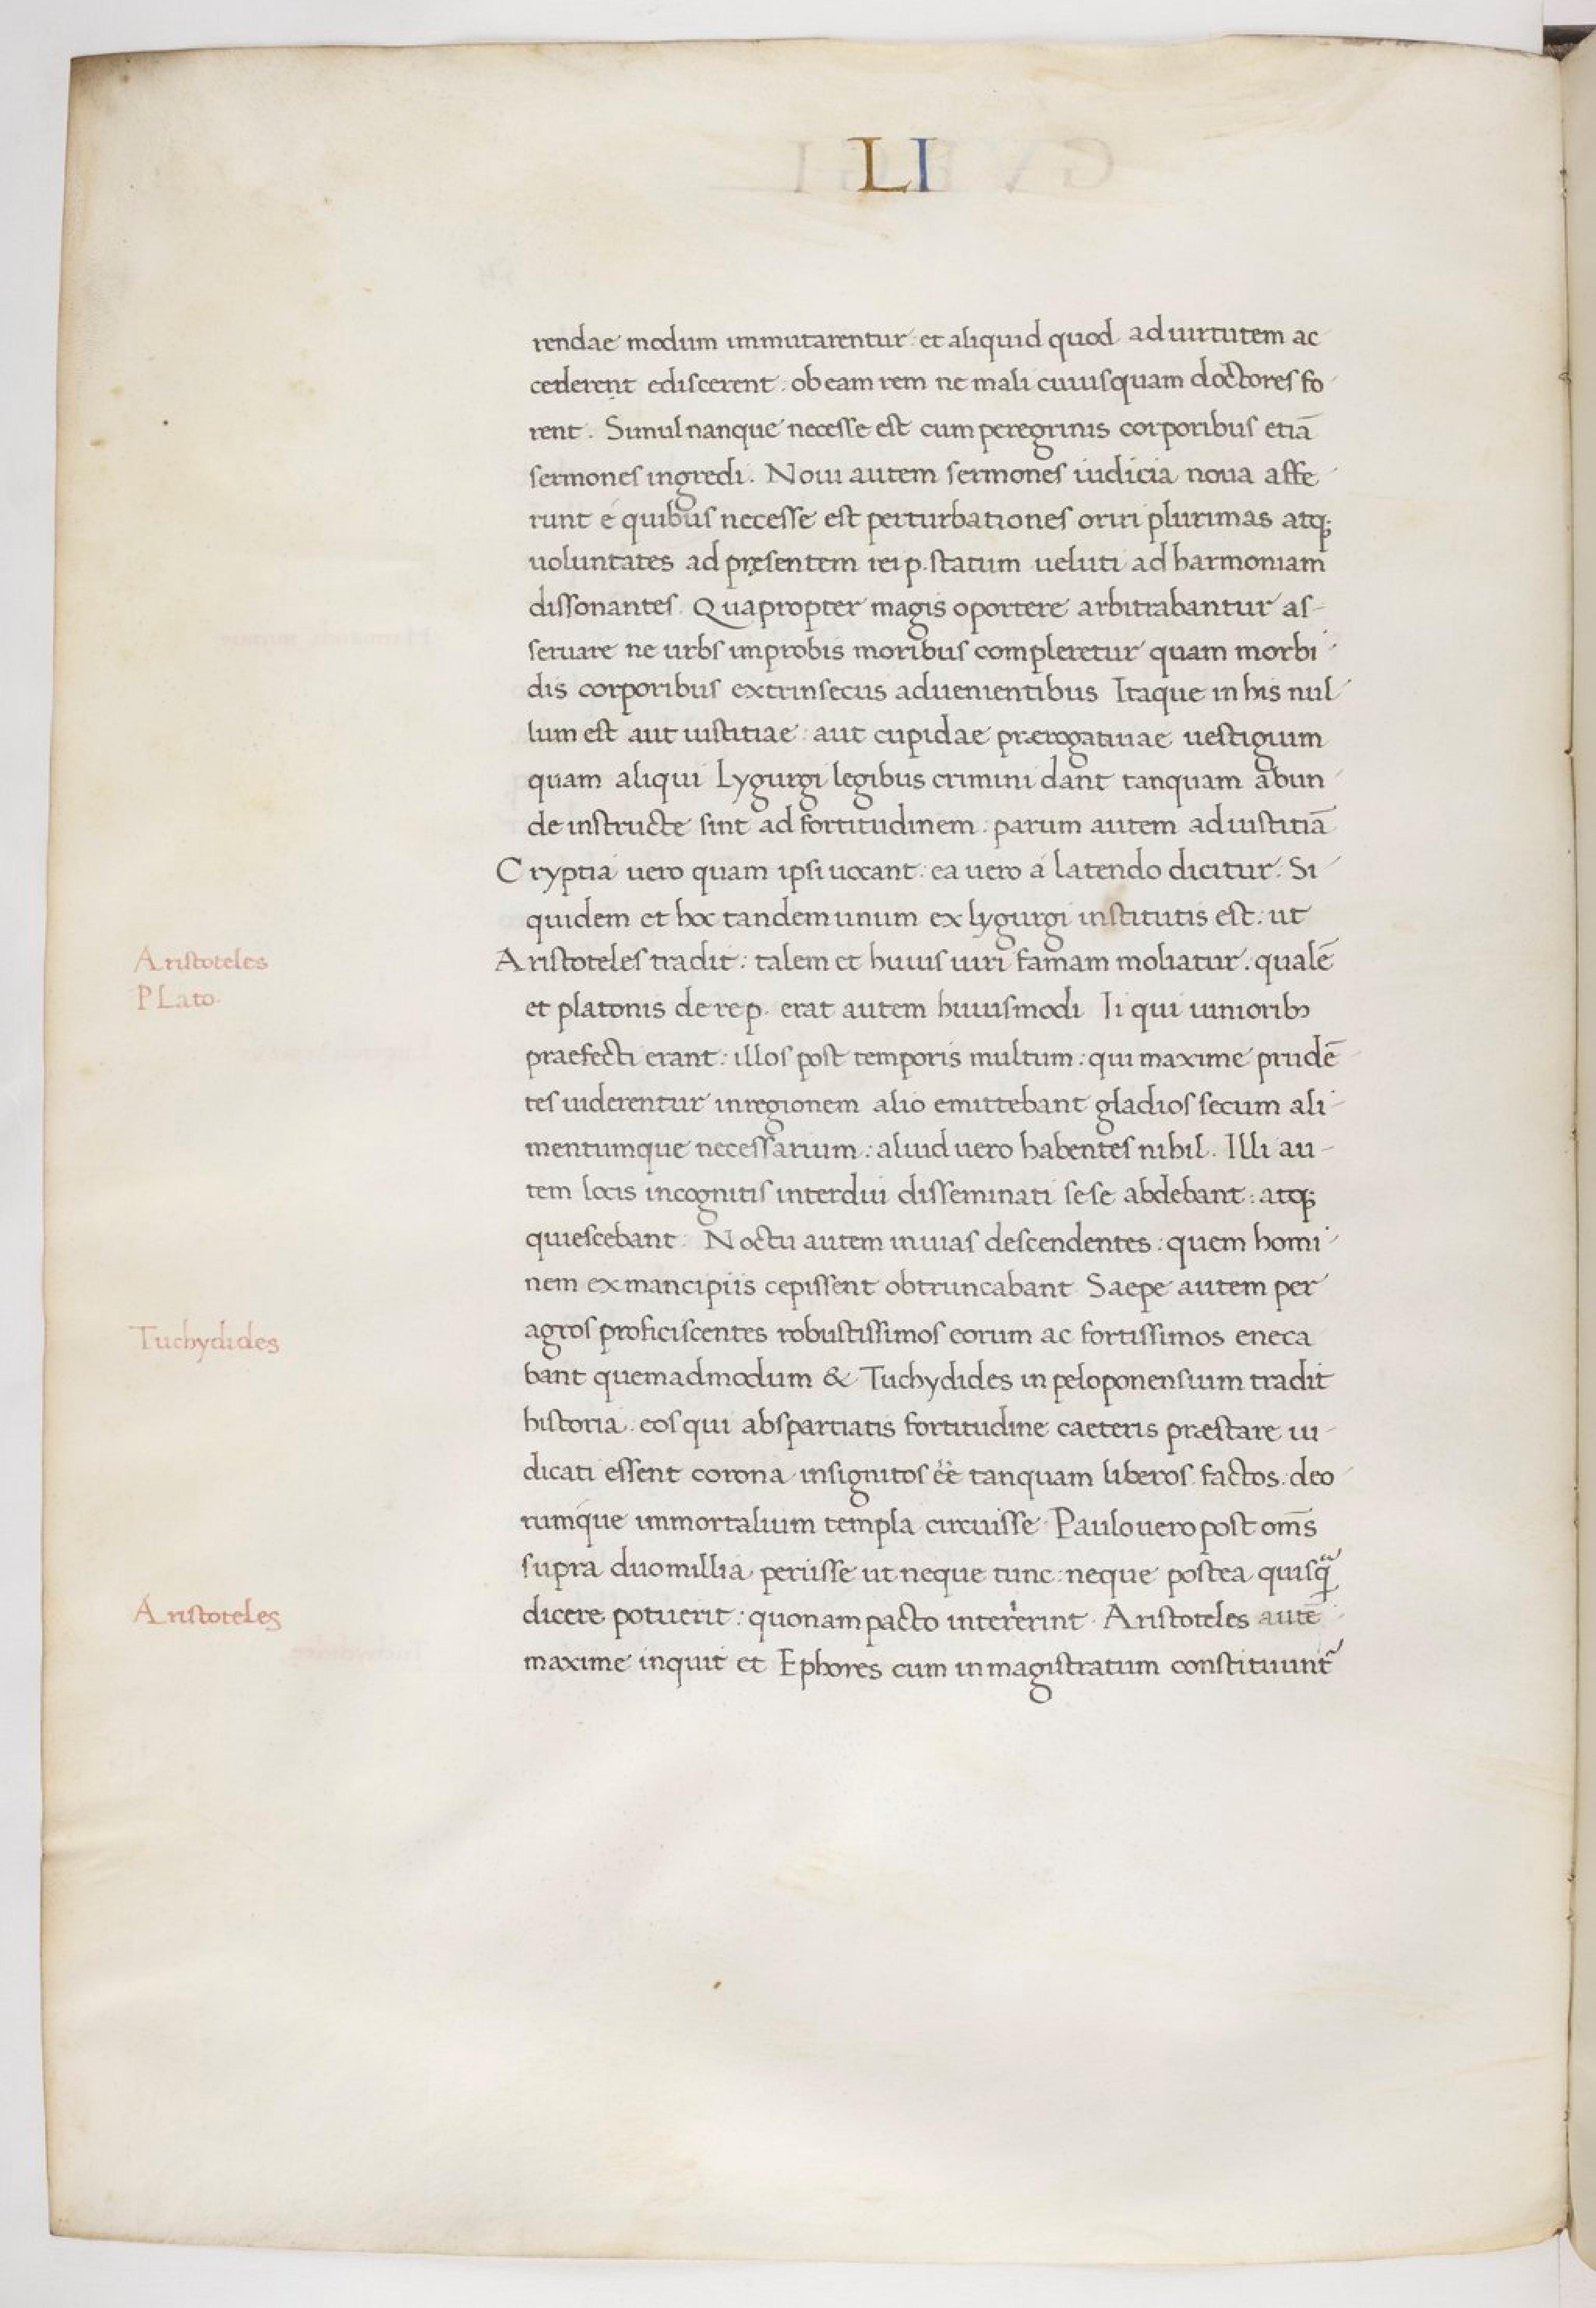 LI
rendae modum immutarentur: et aliquid quod ad uirtutem ac
cederent ediscerent: ob eam rem ne mali cuiusquam doctores fo
rent. Simul nanque necesse est cum peregrinis corporibus etiā
sermones ingredi. Noui autem sermones iudicia noua affe
runt é quibus necesse est perturbationes oriri plurimas atq;
uoluntates ad pręsentem rei p. statum ueluti ad harmoniam
dissonantes. Quapropter magis oportere arbitrabantur as-
seruare ne urbs improbis moribus compleretur quam morbi
dis corporibus extrinsecus aduenientibus Itaque in his nul
lum est aut iustitiae: aut cupidae prærogatiuae uestigium
quam aliqui Lygurgi legibus crimini dant tanquam abun
de instructe sint ad fortitudinem: parum autem ad iustitiā
Cryptia uero quam ipsi uocant: ea uero á latendo dicitur: Si
quidem et hoc tandem unum ex lygurgi institutis est: ut
Aristoteles
Aristoteles tradit: talem et huius uiri famam moliatur. qualē
PLato
et platonis de re p. erat autem huiusmodi Ii qui iunioribꝰ
praefecti erant: illos post temporis multum: qui maxime prudē
tes uiderentur in regionem alio emittebant gladios secum ali
mentumque necessarium: aliud uero habentes nihil. Illi au-
tem locis incognitis interdiu disseminati sese abdebant: atq;
quiescebant: Noctu autem in uias descendentes: quem homi
nem ex mancipiis cepissent obtruncabant Saepe autem per
Tuchydides
agros proficiscentes robustissimos eorum ac fortissimos eneca
bant quemadmodum & Tuchydides in peloponensium tradit
historia: eos qui ab spartiatis fortitudine caeteris præstare iu-
dicati essent corona insignitos eē tanquam liberos factos: deo
rumque immortalium templa circuisse. Paulo uero post om̄s
supra duo millia periisse ut neque tunc: neque postea quisq̄
Aristoteles
dicere potuerit: quonam pacto interierint. Aristoteles autē
maxime inquit et Ephores cum in magistratum constituunt̄